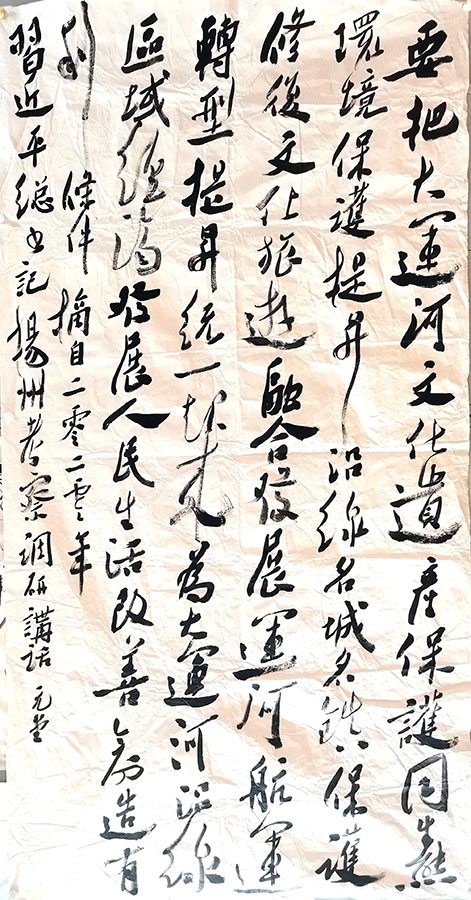 要把大運河文化遺產保護同生態
環境保護提昇沿線名城名鎮保護
修復文化旅遊融合發展運河航運
轉型提昇統一起來為大運河沿線
區域經濟發展人民生活改善創造有
利條件 摘自二零二零年
習近平總書記揚州考察調研講話 元堂